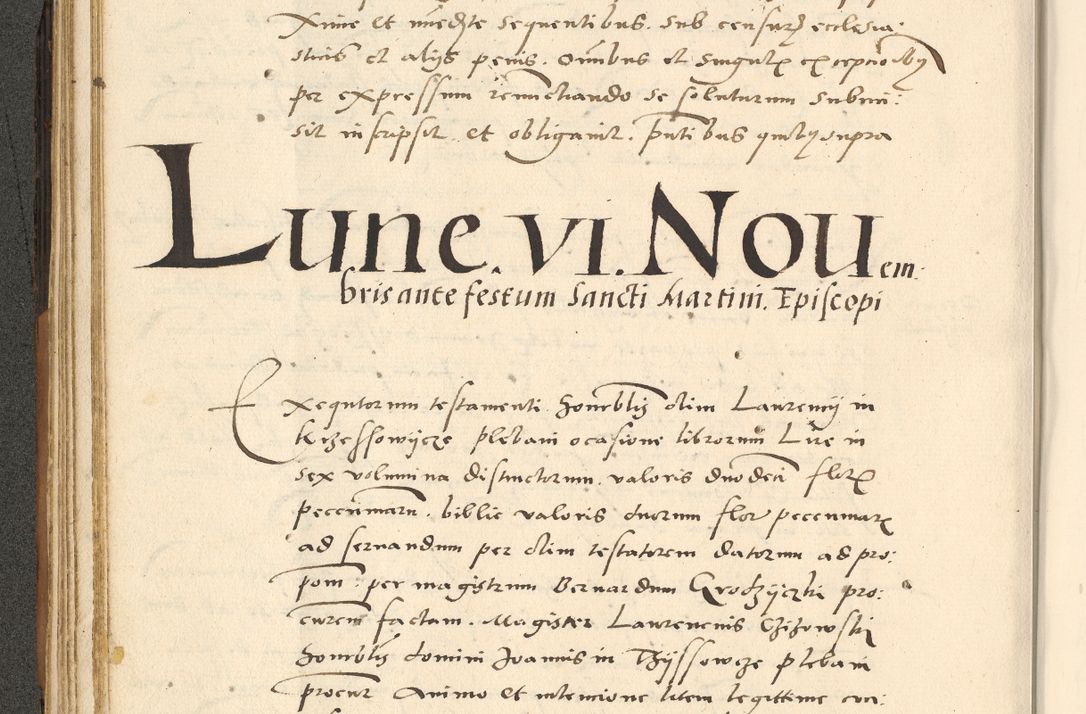 Xime et immediate sequentibus. sub censuris ecclesia:
sticis et alijs penis. Omnibus et singulis exceptionibus
per expressum renuctiando se soluturum submi:
sit inscripsit et obligavit. pntibus quibus supra
Lune. VI. Nouem
bris ante festum Sancti Martini. Episcopi
Exequtorum testamenti. honorblis olim Laurencij in
Krzessowijcze plebani ocasione librorum Lire in
sex volumina distinctorum. valoris duodeci flor
peccuniarum. biblie valoris duorum flor peccuniarum
ad servandum per olim testatorem datorum ad pro:
pom: per magistrum Bernardum Grodzijczki pro:
curem factam. Magister Laurencius
honorblis domini Joannis in plebani
procur Animo et intencione litem legittime con: